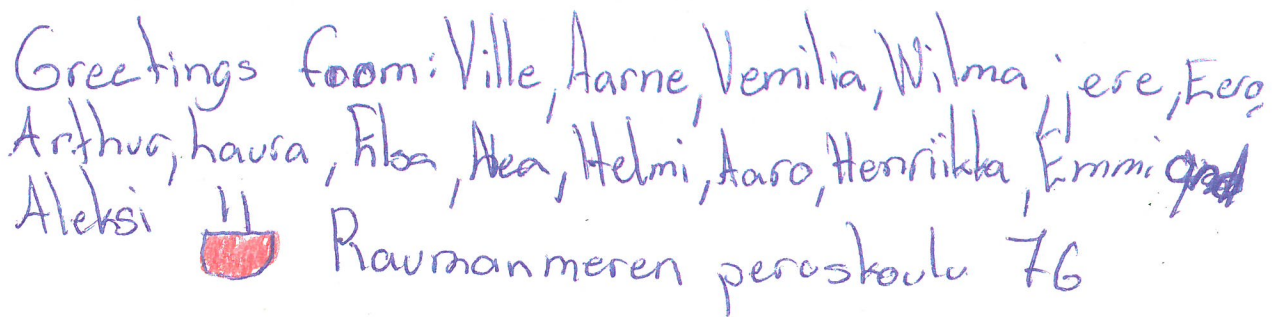 Greetings from: Ville, Aarne, Vemilia, Wilma, jere, Eero,
Arthur, Laura, Elsa, Nea, Helmi, Aaro, Henriikka, Emmi and
Aleksi
Raumanmeren peruskoulu 7G